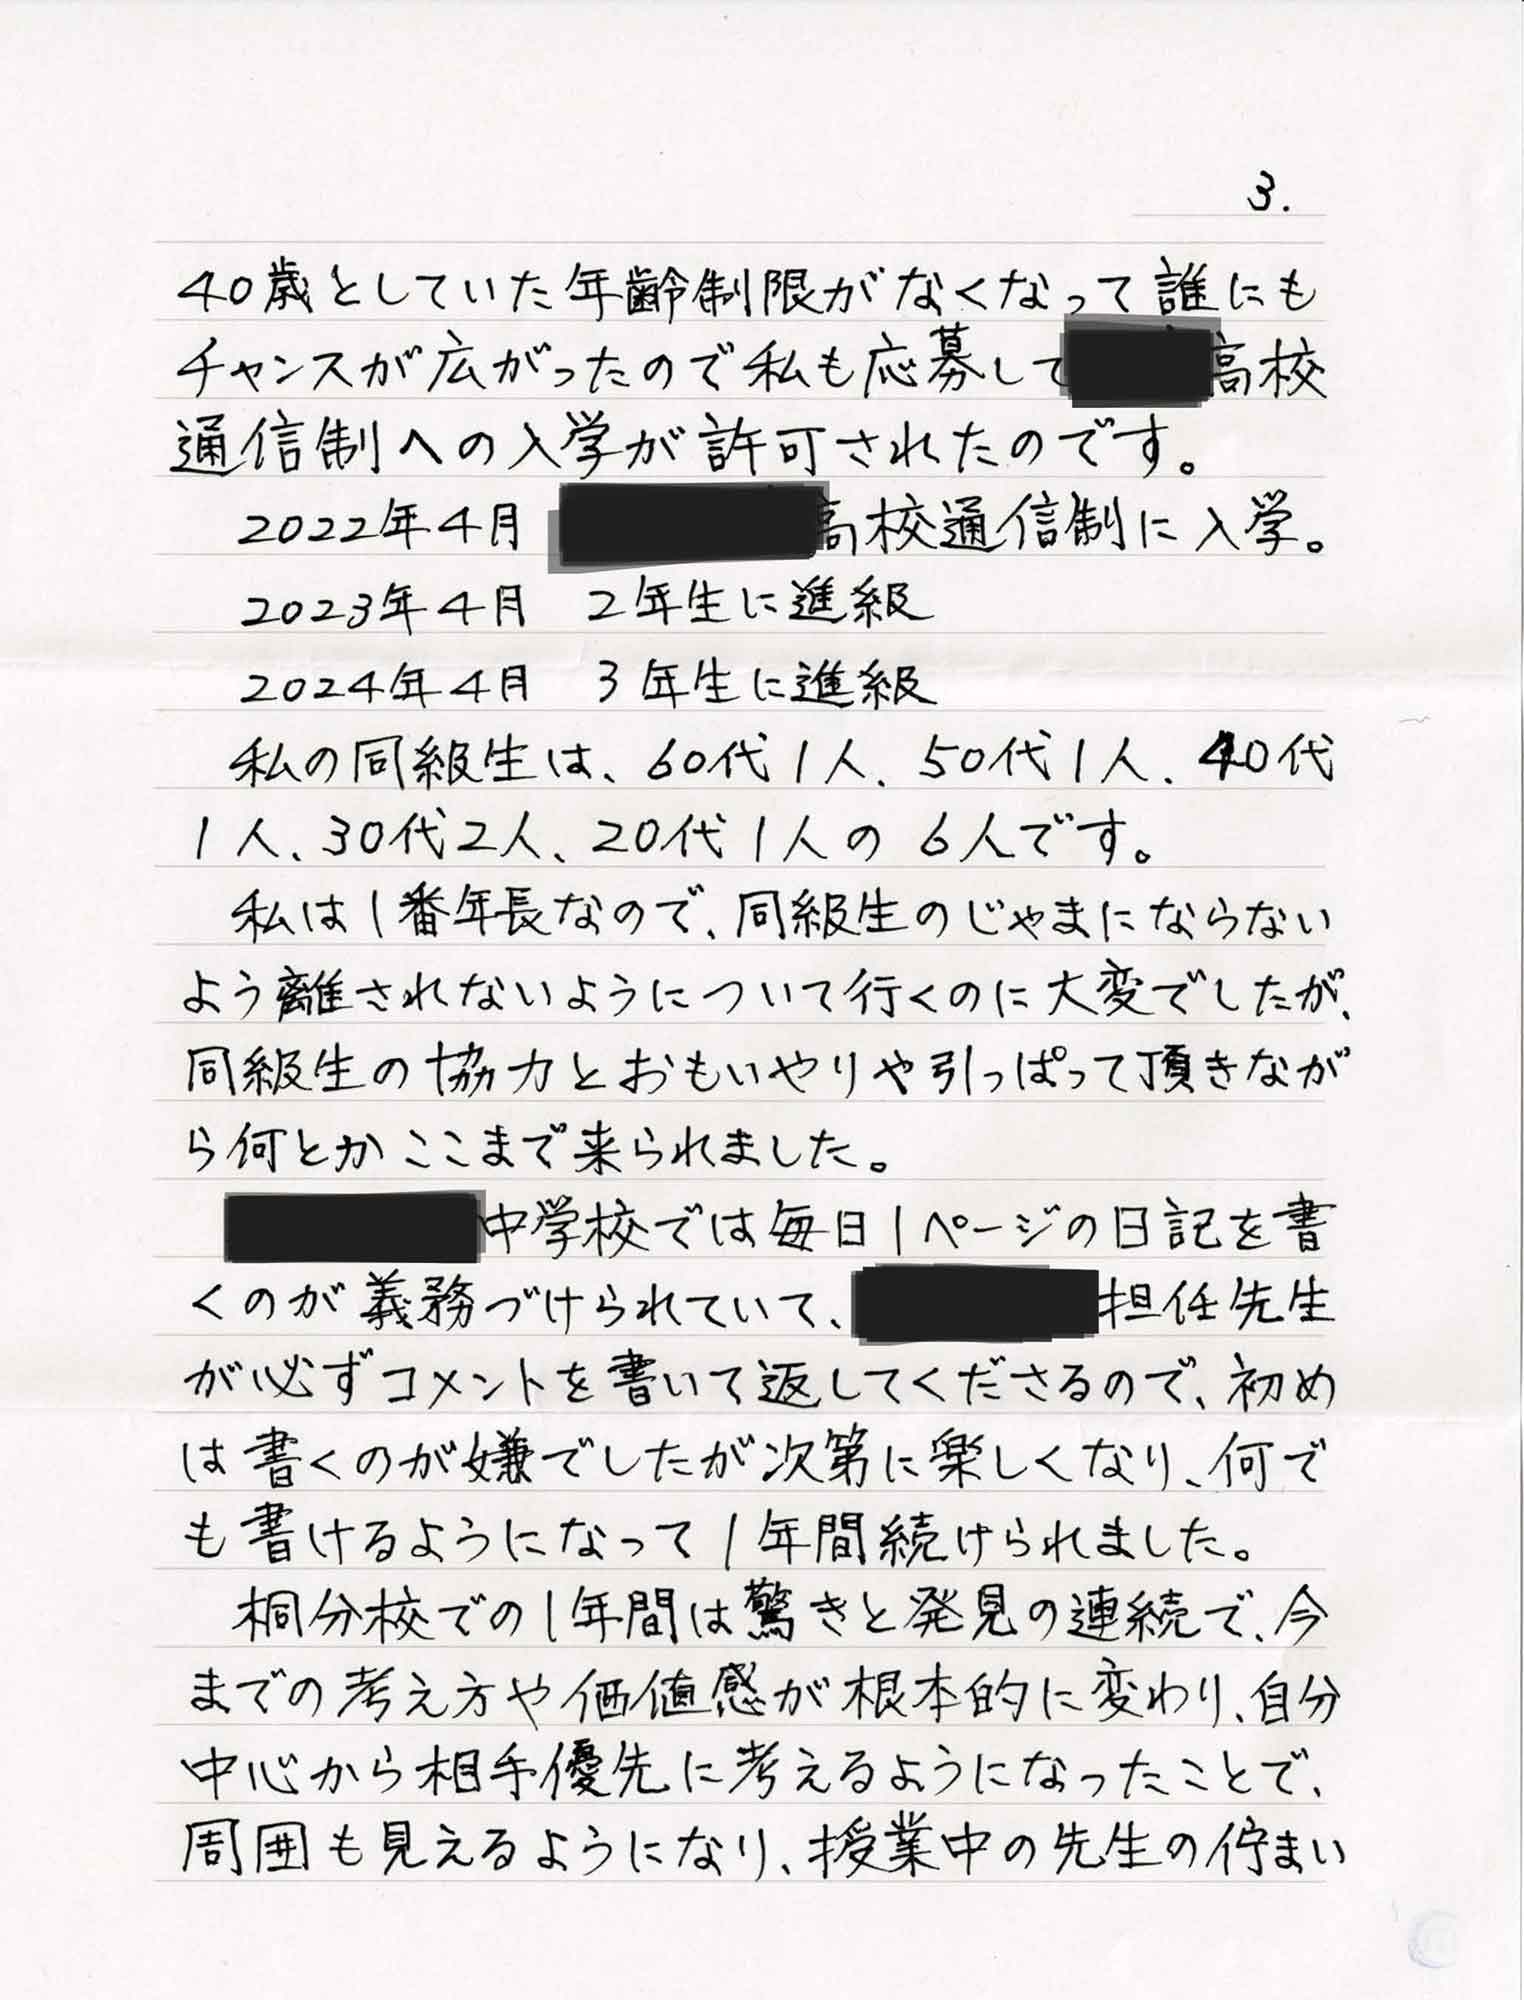 3.
40歳としていた年齢制限がなくなって誰にも
チャンスが広がったので私も応募して高校
通信制への入学が許可されたのです。
2022年4月 高校通信制に入学。
2023年4月 2年生に進級
2024年4月 3年生に進級
私の同級生は、60代1人、50代1人、40代
1人、30代2人、20代1人の6人です。
私は1番年長なので、同級生のじゃまにならない
よう離されないようについて行くのに大変でしたが、
同級生の協力とおもいやりや引っぱって頂きなが
ら何とかここまで来られました。
中学校では毎日1ページの日記を書
くのが義務づけられていて、担任先生
が必ずコメントを書いて返してくださるので、初め
は書くのが嫌でしたが次第に楽しくなり、何で
も書けるようになって1年間続けられました。
桐分校での1年間は驚きと発見の連続で、今
までの考え方や価値感が根本的に変わり、自分
中心から相手優先に考えるようになったことで、
周囲も見えるようになり、授業中の先生の佇まい